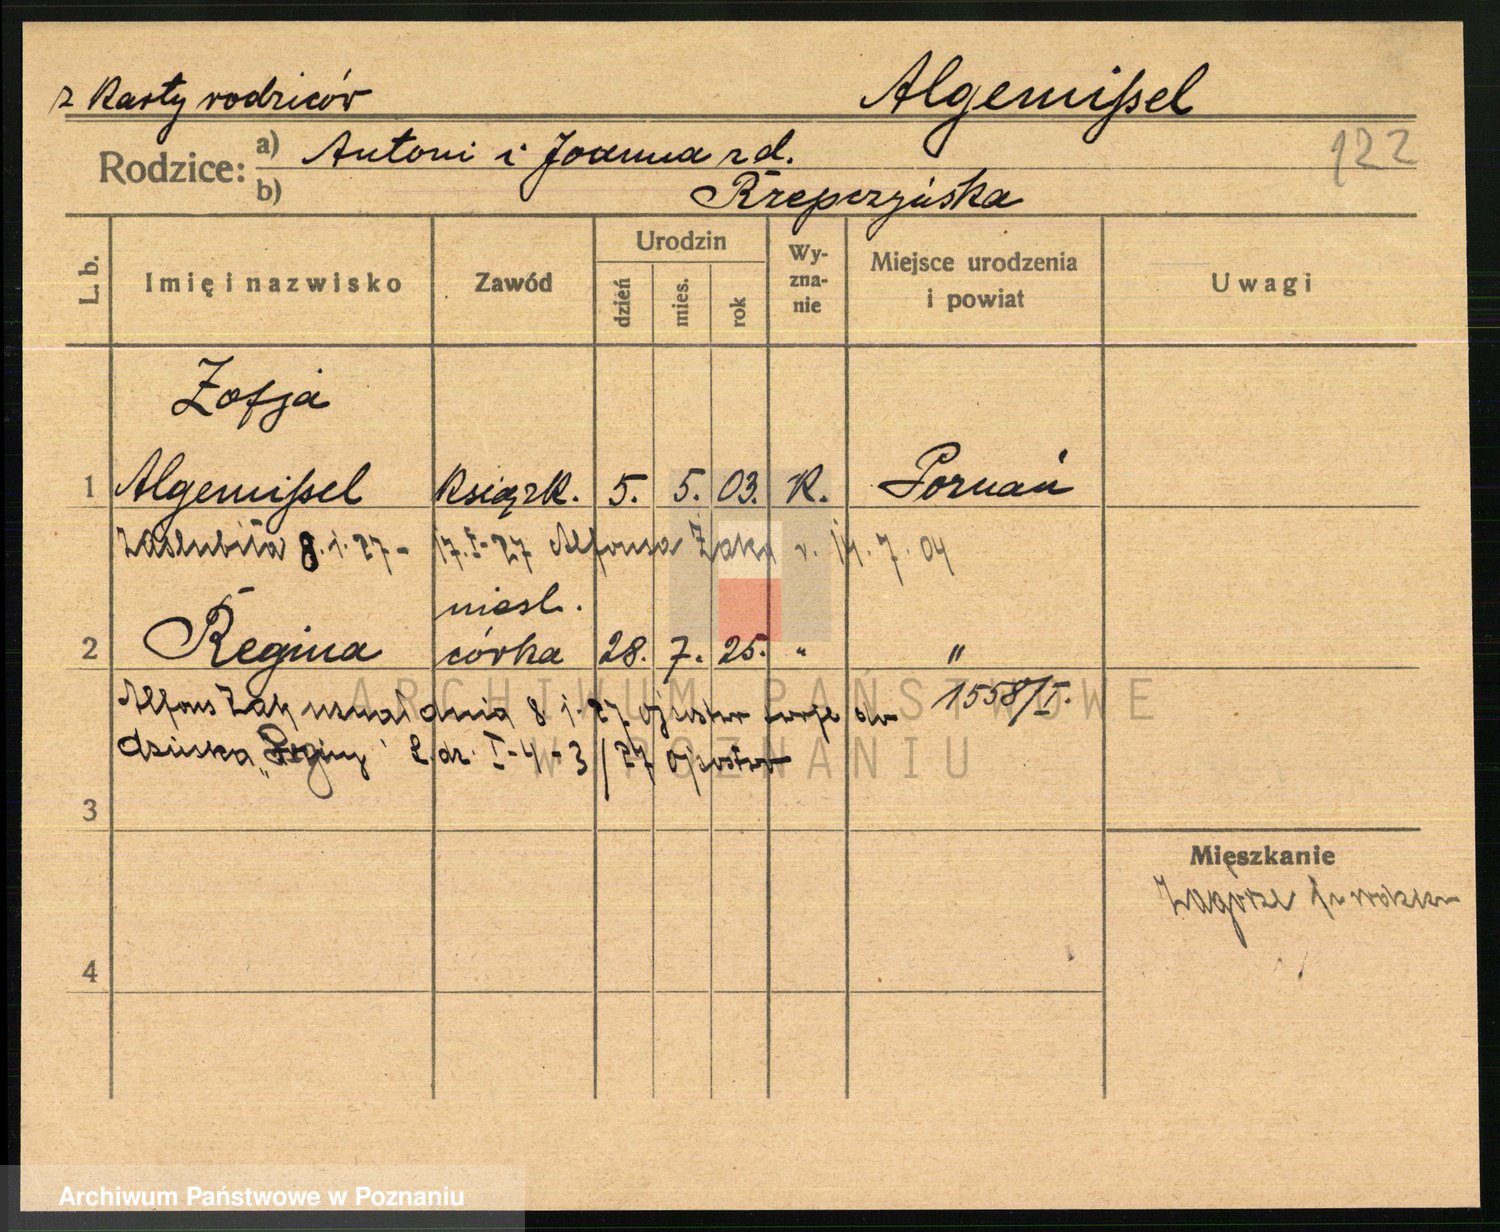 z karty rodziców
Algemißel
Rodzice: a) Antoni i Joanna zd.
b) Rzepczyńska
122
L. b.
Imię i nazwisko
Zawód
Urodzin
dzień
mies.
rok
Wy-
zna-
nie
Miejsce urodzenia
i powiat
Uwagi
Zofja
1 Algemißel książk. 5. 5. 03. K. Poznań
Zaślubiła 8.1.27 - 17.I-27 Alfonsa Żaka 14.7.04
nieśl.
2 Regina córka 28. 7. 25. " "
Alfons Żak uznał dnia 8.1.27 ojcostwo 1558/I.
dziecka „Reginy" L.dz. I-4-3/27 ojcostwo
3
Mieszkanie
Zagórze
4
ARCHIWUM PAŃSTWOWE
W POZNANIU
Archiwum Państwowe w Poznaniu